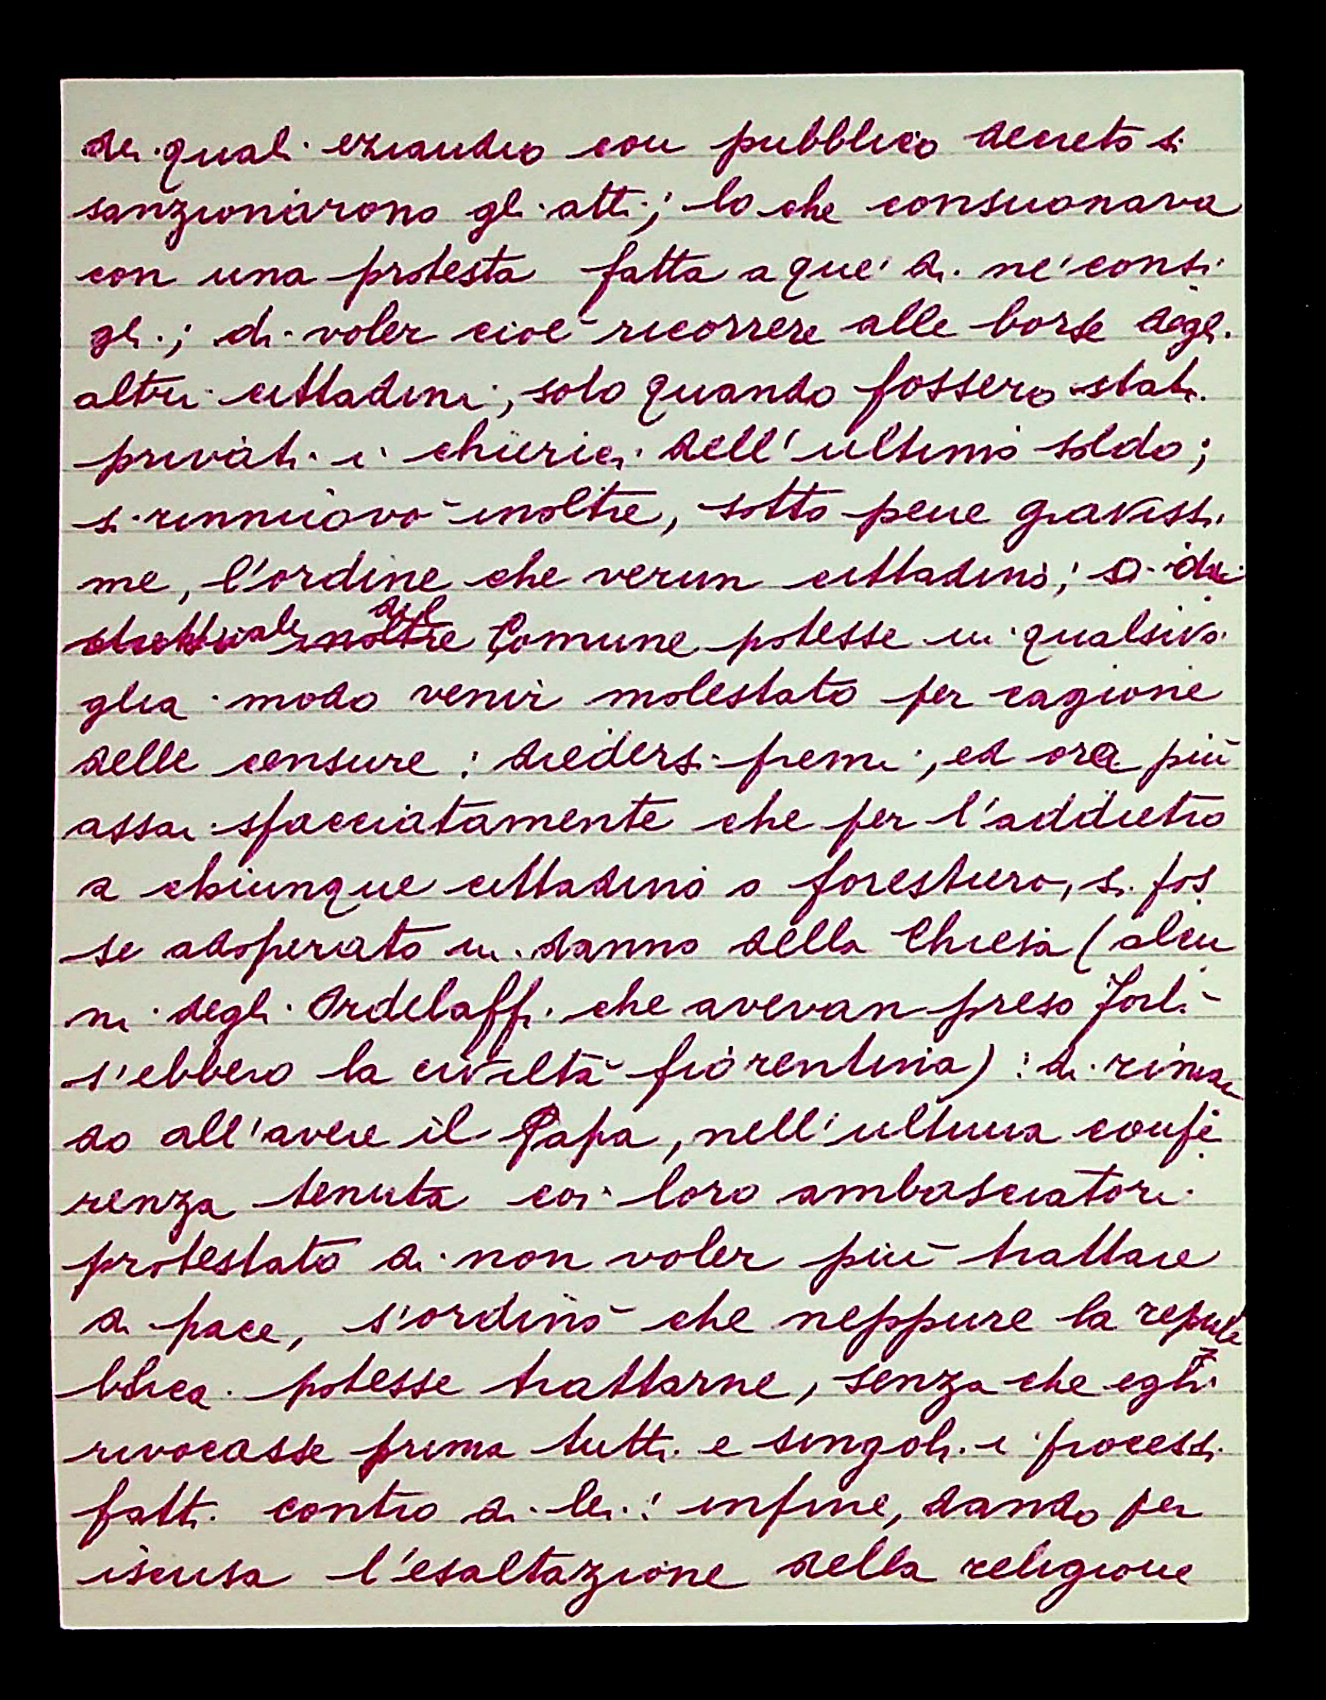 dei quali eziandio con pubblico decreto si
sanzionarono gli atti; lo che consuonava
con una protesta fatta a que' dì ne' consi
gli; di voler cioè ricorrere alle borse degli
altri cittadini, solo quando fossero stati
privati i chierici dell'ultimo soldo;
si rinnuovò inoltre, sotto pene gravissi
me, l'ordine che verun cittadino, o di
strettuale del Comune potesse in qualsivo
glia modo venir molestato per cagione
delle censure: diedersi premi, ed ora più
assai sfacciatamente che per l'addietro
a chiunque cittadino o forestiero, si fos
se adoperato in danno della Chiesa (alcu
ni degli Ordelaffi che avevan preso Forlì
s'ebbero la civiltà fiorentina): di riman
do all'avere il Papa, nell'ultima confe
renza tenuta coi loro ambasciatori
protestato di non voler più trattare
di pace, s'ordinò che neppure la repub
blica potesse trattarne, senza che egli
rivocasse prima tutti e singoli i processi
fatti contro di lei: infine, dando per
iscusa l'esaltazione della religione